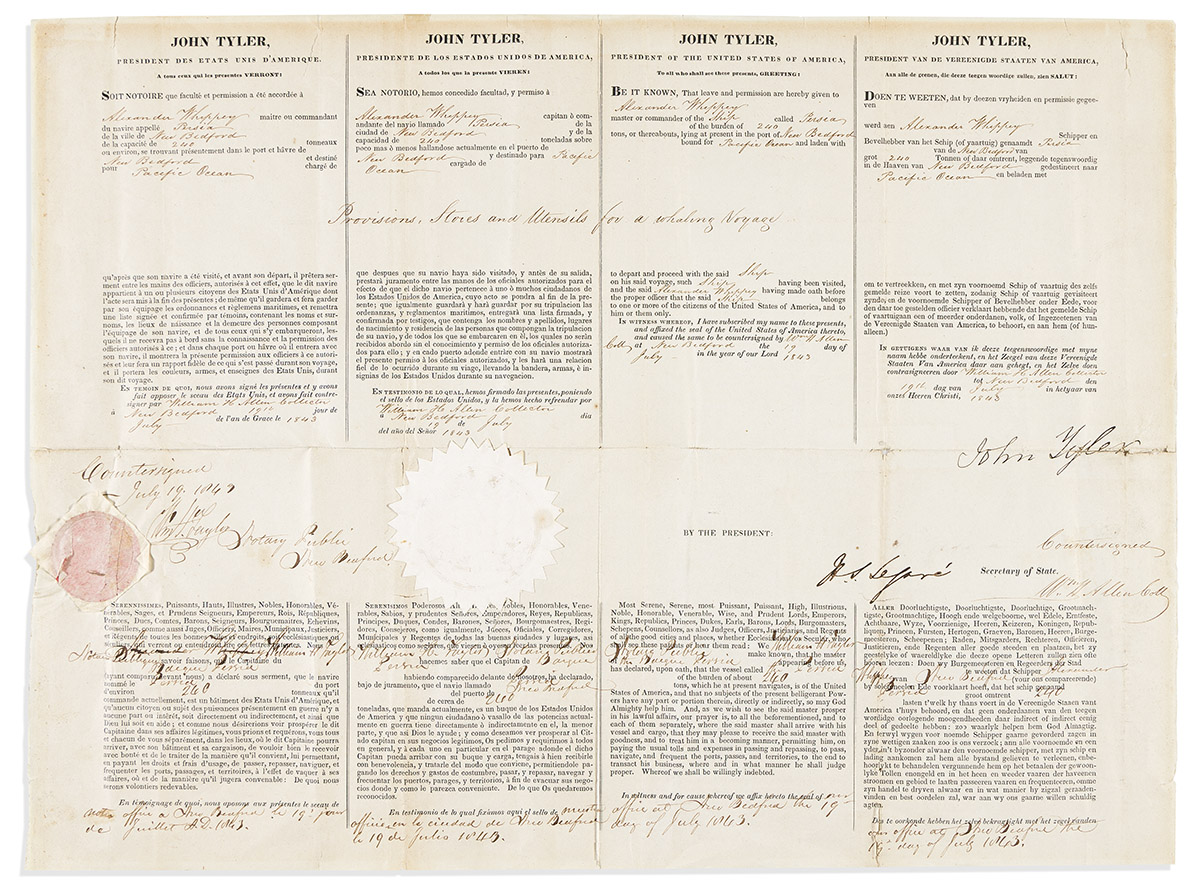 JOHN TYLER,
PRESIDENT DES ETATS UNIS D'AMERIQUE.
A tous ceux qui les presentes VERRONT:
SOIT NOTOIRE que faculté et permission a été accordée à
Alexander Wheppey maitre ou commandant
du navire appellé Persia
de la ville de New Bedford
de la capacité de 240 tonneaux
ou environ, se trouvant présentement dans le port et hâvre de
New Bedford et destiné
pour Pacific Ocean chargé de
JOHN TYLER,
PRESIDENTE DE LOS ESTADOS UNIDOS DE AMERICA,
A todos los que la presente VIEREN:
SEA NOTORIO, hemos concedido facultad, y permiso á
Alexander Wheppey capitan ó com-
andante del navio llamado Persia de la
ciudad de New Bedford y de la
capacidad de 240 toneladas sobre
poco mas ó menos hallandose actualmente en el puerto de
New Bedford y destinado para Pacific
Ocean cargado de
JOHN TYLER,
PRESIDENT OF THE UNITED STATES OF AMERICA,
To all who shall see these presents, GREETING:
BE IT KNOWN, That leave and permission are hereby given to
Alexander Wheppey
master or commander of the Ship called Persia
of the burden of 240
tons, or thereabouts, lying at present in the port of New Bedford
bound for Pacific Ocean and laden with
JOHN TYLER,
PRESIDENT VAN DE VEREENIGDE STAATEN VAN AMERICA,
Aan alle de geenen, die deeze tegen woordige zullen, zien SALUT:
DOEN TE WEETEN, dat by deezen vryheiden en permissie gegee-
ven
werd aen Alexander Wheppey Schipper en
Bevelhebber van het Schip (of vaartuig) genaamdt Persia
van de New Bedford van
grot 240 Tonnen of daar omtrent, leggende tegenswoordig
in de Haaven van New Bedford gedestineert naar
Pacific Ocean en beladen met
Provisions, Stores and Utensils for a whaling Voyage
qu'après que son navire a été visité, et avant son départ, il prêtera ser-
ment entre les mains des officiers, autorisés à cet effet, que le dit navire
appartient à un ou plusieurs citoyens des Etats Unis d'Amérique dont
l'acte sera mis à la fin des présentes; de même qu'il gardera et fera garder
par son équipage les ordonnances et réglemens maritimes, et remettra
une liste signée et confirmée par témoins, contenant les noms et sur-
noms, les lieux de naissance et la demeure des personnes composant
l'équipage de son navire, et de tous ceux qui s'y embarqueront, les-
quels il ne recevra pas à bord sans la connaissance et la permission des
officiers autorisés à ce; et dans chaque port ou hâvre où il entrera avec
son navire, il montrera la présente permission aux officiers à ce autori-
sés et leur fera un rapport fidèle de ce qui s'est passé durant son voyage,
et il portera les couleurs, armes, et enseignes des Etats Unis, durant
son dit voyage.
EN TEMOIN DE QUOI, nous avons signé les présentes et y avons
fait apposer le sceau des Etats Unis, et avons fait contre-
signer par William H Allen Collector
à New Bedford 19th jour de
July de l'an de Grace le 1843
que despues que su navio haya sido visitado, y antès de su salida,
prestará juramento entre las manos de los oficiales autorizados para el
efecto de que el dicho navio pertenece à uno ó muchos ciudadanos de
los Estados Unidos de America, cuyo acto se pondra al fin de la pre-
sente; que igualmente guardará y hará guardar por su tripulacion las
ordenanzas, y reglamentos maritimos, entregará una lista firmada, y
confirmada por testigos, conteniendo los nombres y apellidos, lugares
de nacimiento y residencia de las personas que compongan la tripulacion
de su navio, y de todos los que se embarcaren en èl, los quales no seràn
recibidos abordo sin el conocimiento y permiso de los oficiales autoriza-
dos para ello; y en cada puerto adonde entrire con su navio mostrará
el presente permiso á los oficiales autorizados, y les hará una relacion
fiel de lo ocurrido durante su viage, llevando la bandera, armas, è in-
signias de los Estados Unidos durante su navegacion.
EN TESTIMONIO DE LO QUAL, hemos firmado las presentes, poniendo
el sello de los Estados Unidos, y la hemos hecho refrendar por
William H Allen Collector
a New Bedford dia
19 de July
del año del Señor 1843
to depart and proceed with the said Ship
on his said voyage, such Ship having been visited,
and the said Alexander Wheppey having made oath before
the proper officer that the said Ship belongs
to one or more of the citizens of the United States of America, and to
him or them only.
IN WITNESS WHEREOF, I have subscribed my name to these presents,
and affixed the seal of the United States of America thereto,
and caused the same to be countersigned by Wm H Allen
Coll at New Bedford the 19 day of
July in the year of our Lord 1843
om te vertreekken, en met zyn voornoemd Schip of vaartuig des zelfs
gemelde reize voort te zetten, zodanig Schip of vaartuig gevisiteert
zynde; en de voornoemde Schipper of Bevelhebber onder Eede, voor
den daar toe gestelden officier verklaart hebbende dat het gemelde Schip
of vaartuig aan een of meerder onderdaanen, volk, of Ingezeetenen van
de Vereenigde Staaten van America, to behoort, en aan hem (of hun-
alleen.)
IN GETUYGENS WAAR VAN ik deeze teegenswoordige met myne
naam hebbe onderteekent, en het Zeegel van deeze Vereenigde
Staaten Van America daar aan gehegt, en het Zelve doen
contrasigneeren door William H Allen Collector
tot New Bedford den
19th dag van July in het yaar van
onzes Heeren Christi, 1843
John Tyler
Countersigned
July 19. 1843
Wm H Taylor
Notary Public
New Bedford
BY THE PRESIDENT:
H. S. Legaré
Secretary of State.
Countersigned
Wm H Allen Coll
SERENISSIMES, Puissants, Hauts, Illustres, Nobles, Honorables, Vé-
nérables, Sages, et Prudens Seigneurs, Empereurs, Rois, Républiques,
Princes, Ducs, Comtes, Barons, Seigneurs, Bourguemaitres, Echevins,
Conseillers, comme aussi Juges, Officiers, Maires, Municipaux, Justiciers
et Régens de toutes les bonnes villes et endroits, soit ecclésiastiques ou
séculiers qui verront ou entendront lire ces lettres présentes. Nous
William H Taylor
savoir faisons, que le Capitaine du
Persia
(ayant comparu devant nous) a déclaré sous serment, que le navire
nommé le Persia du port
d'environ 240 tonneaux qu'il
commande actuellement, est un bâtiment des Etats Unis d'Amérique, et
qu'aucun citoyen ou sujet des puissances présentement en guerre n'y a
aucune part ou intérêt, soit directement ou indirectement, et ainsi que
Dieu lui soit en garde; et comme nous désirons que le dit Capitaine
Capitaine dans ses affaires légitimes, vous prions et requérons, vous tous
et chacun de vous séparément, dans les lieux, où le dit Capitaine pourra
arriver, avec son bâtiment et sa cargaison, de vouloir bien le recevoir
avec bonté et de le traiter de la manière qu'il convient, lui permettant,
en payant les droits et frais d'usage, de passer, repasser, naviguer, et
fréquenter les ports, passages, et territoires, à l'effet de vaquer à ses
affaires, où et de la manière qu'il jugera convenable: De quoi nous
serons volontiers redevables.
En témoignage de quoi, nous aposons aux présentes le sceau de
notre office a New Bedford le 19e jour
de Juillet A.D. 1843.
SERENISIMOS Poderosos Nobles, Honorables, Vene-
rables, Sabios, y prudentes Señores, Emperadores, Reyes, Republicas,
Principes, Duques, Condes, Barones, Señores, Bourgomaestres, Regi-
dores, Consejeros, como igualmente, Jueces, Oficiales, Corregidores,
Municipales y Regentes de todas las buenas ciudades y lugares, asi
ecclesiasticos como seculares, que la presente vieren ó oyeren leer:
hacemos saber que el Capitan de Barque
Persia
habiendo comparecido delante de Nosotros ha declarado,
bajo de juramento, que el navio llamado Persia
del puerto de New Bedford
de cerca de 240
toneladas, que manda actualmente, es un buque de los Estados Unidos
de America y que ningun ciudadano ò vasallo de las potencias actual-
mente en guerra tiene directamente ni indirectamente en el, la menor
parte, y que asi Dios le ayude; y como deseamos ver prosperar al Cit-
ado Capitan en sus negocios legitimos, Os pedimos y requirimos a todos
en general, y á cada uno en particular en el parage adonde el dicho
Capitan pueda arribar con su buque y carga, tengais à bien recibirle
con benevolencia, y tratarle del modo que conviene, permitiendole pa-
gando los derechos y gastos de costumbre, pasar, y repasar, navegar y
frecuentar los puertos, pasages, y territorio, à fin de evacuar sus nego-
cios donde y como le parezca conveniente. De lo que Os quedaremos
reconocidos.
En testimonio de lo qual fixàmos aqui el sello de nuestro
officio en la ciudad de New Bedford
le 19 de Julio 1843.
Most Serene, Serene, most Puissant, Puissant, High, Illustrious,
Noble, Honorable, Venerable, Wise, and Prudent Lords, Emperors,
Kings, Republics, Princes, Dukes, Earls, Barons, Lords, Burgomasters,
Schepens, Counsellors, as also Judges, Officers, Justiciaries, and Regents
of all the good cities and places, whether Ecclesiastical or Secular, who
shall see these patents or hear them read: We William H Taylor
Notary Public make known, that the master
of the Barque Persia appearing before us,
has declared, upon oath, that the vessel called Persia
of the burden of about 240
tons, which he at present navigates, is of the United
States of America, and that no subjects of the present belligerent Pow-
ers have any part or portion therein, directly or indirectly, so may God
Almighty help him. And, as we wish to see the said master prosper
in his lawful affairs, our prayer is, to all the beforementioned, and to
each of them separately, where the said master shall arrive with his
vessel and cargo, that they may please to receive the said master with
goodness, and to treat him in a becoming manner, permitting him, on
paying the usual tolls and expenses in passing and repassing, to pass,
navigate, and frequent the ports, passes, and territories, to the end to
transact his business, where and in what manner he shall judge
proper. Whereof we shall be willingly indebted.
In witness and for cause whereof we affix hereto the seal of our
office at New Bedford the 19th
day of July 1843.
ALLER Doorluchtigste, Doorluchtige, Doorluchtige, Grootmach-
tigste, Grootmachtige, Hoogh ende welgebooren, wel Edele, Erntfeste,
Achtbaare, Wyze, Voorzienige, Heeren, Keizeren, Koningen, Repub-
liquen, Princen, Fursten, Hertogen, Graeven, Baronen, Heeren, Burge-
meesteren, Scheepenen; Raden, Mitsgarders, Rechteren, Officieren,
Justicieren, ende Regenten aller goede steeden en plaatzen, het zy
geestelyke of waereldlyke die deeze open Letteren zullen zien ofte
hooren leezen: Doen wy Burgemeesteren en Regeerders der Stad
te weeten dat Schipper Alexander
Wheppey van New Bedford (voor ons comparerende)
by solemneelen Ede voorklaart heeft, dat het schip genaamd
Persia groot omtrent 240
lasten 'twelk hy thans voert in de Vereenigde Staaten vant
America t'huys behoort, en dat geen onderdaanen den tegen
wordige oorlogende moogendheeden daar indirect of indirect eenig
deel of gemeenschap aan hebben, zo waarlyk helpen hem God Almagtig.
En terwyl wygen voor noemde Schipper gaarne gevorderd zagen in
zyne wettigen zaaken zoo is ons verzoek; am alle voornoemde en een
yder, in't byzonder alwaar den voornoemde schipper, met zyn schip en
lading aankomen zal hem alle bystand gelieven te verlenen, enbe-
hoorlykt te behandelen vergunnende hem op het betaalen der gewoon-
lyke Tollen enongeld en in het heen en weeder vaaren der haveenen
stroomen en gebied te laaten passeeren vaaren en frequenteeren, omme
zyn handel te dryven alwaar en in wat manier by zigzal geraaden-
vinden en best oordelen zal, war aan wy ons gaarne willen schuldig
agten.
Des te oorkonde hebben het zelve bekragtigt met het zegel vanden
our office at New Bedford the
19th day of July 1843.